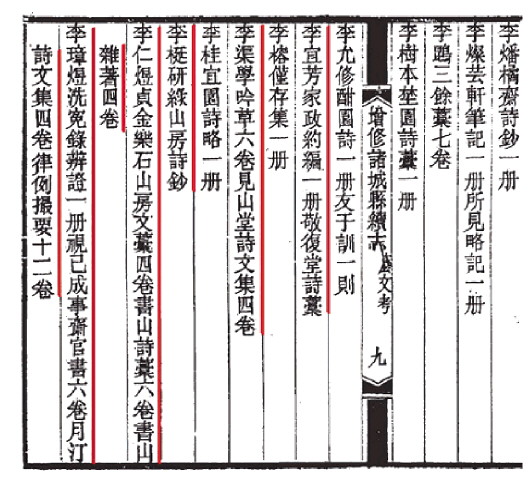 李燔橘齋詩鈔一册
李燦芸軒筆記一册所見略記一册
李鷗三餘藁七卷
李樹本埜園詩藁一册
增修諸城縣續志 藝文考 九
李允修酣園詩一册友于訓一則
李宜芳家政約編一册敬復堂詩藁
李榕僅存集一册
李渠學吟草六卷見山堂詩文集四卷
李桂宜園詩略一册
李梃研綠山房詩鈔
李仁煜貞金樂石山房文藁四卷書山詩藁六卷書山
雜著四卷
李璋煜洗冤錄辨證一册視已成事齋官書六卷月汀
詩文集四卷律例撮要十二卷